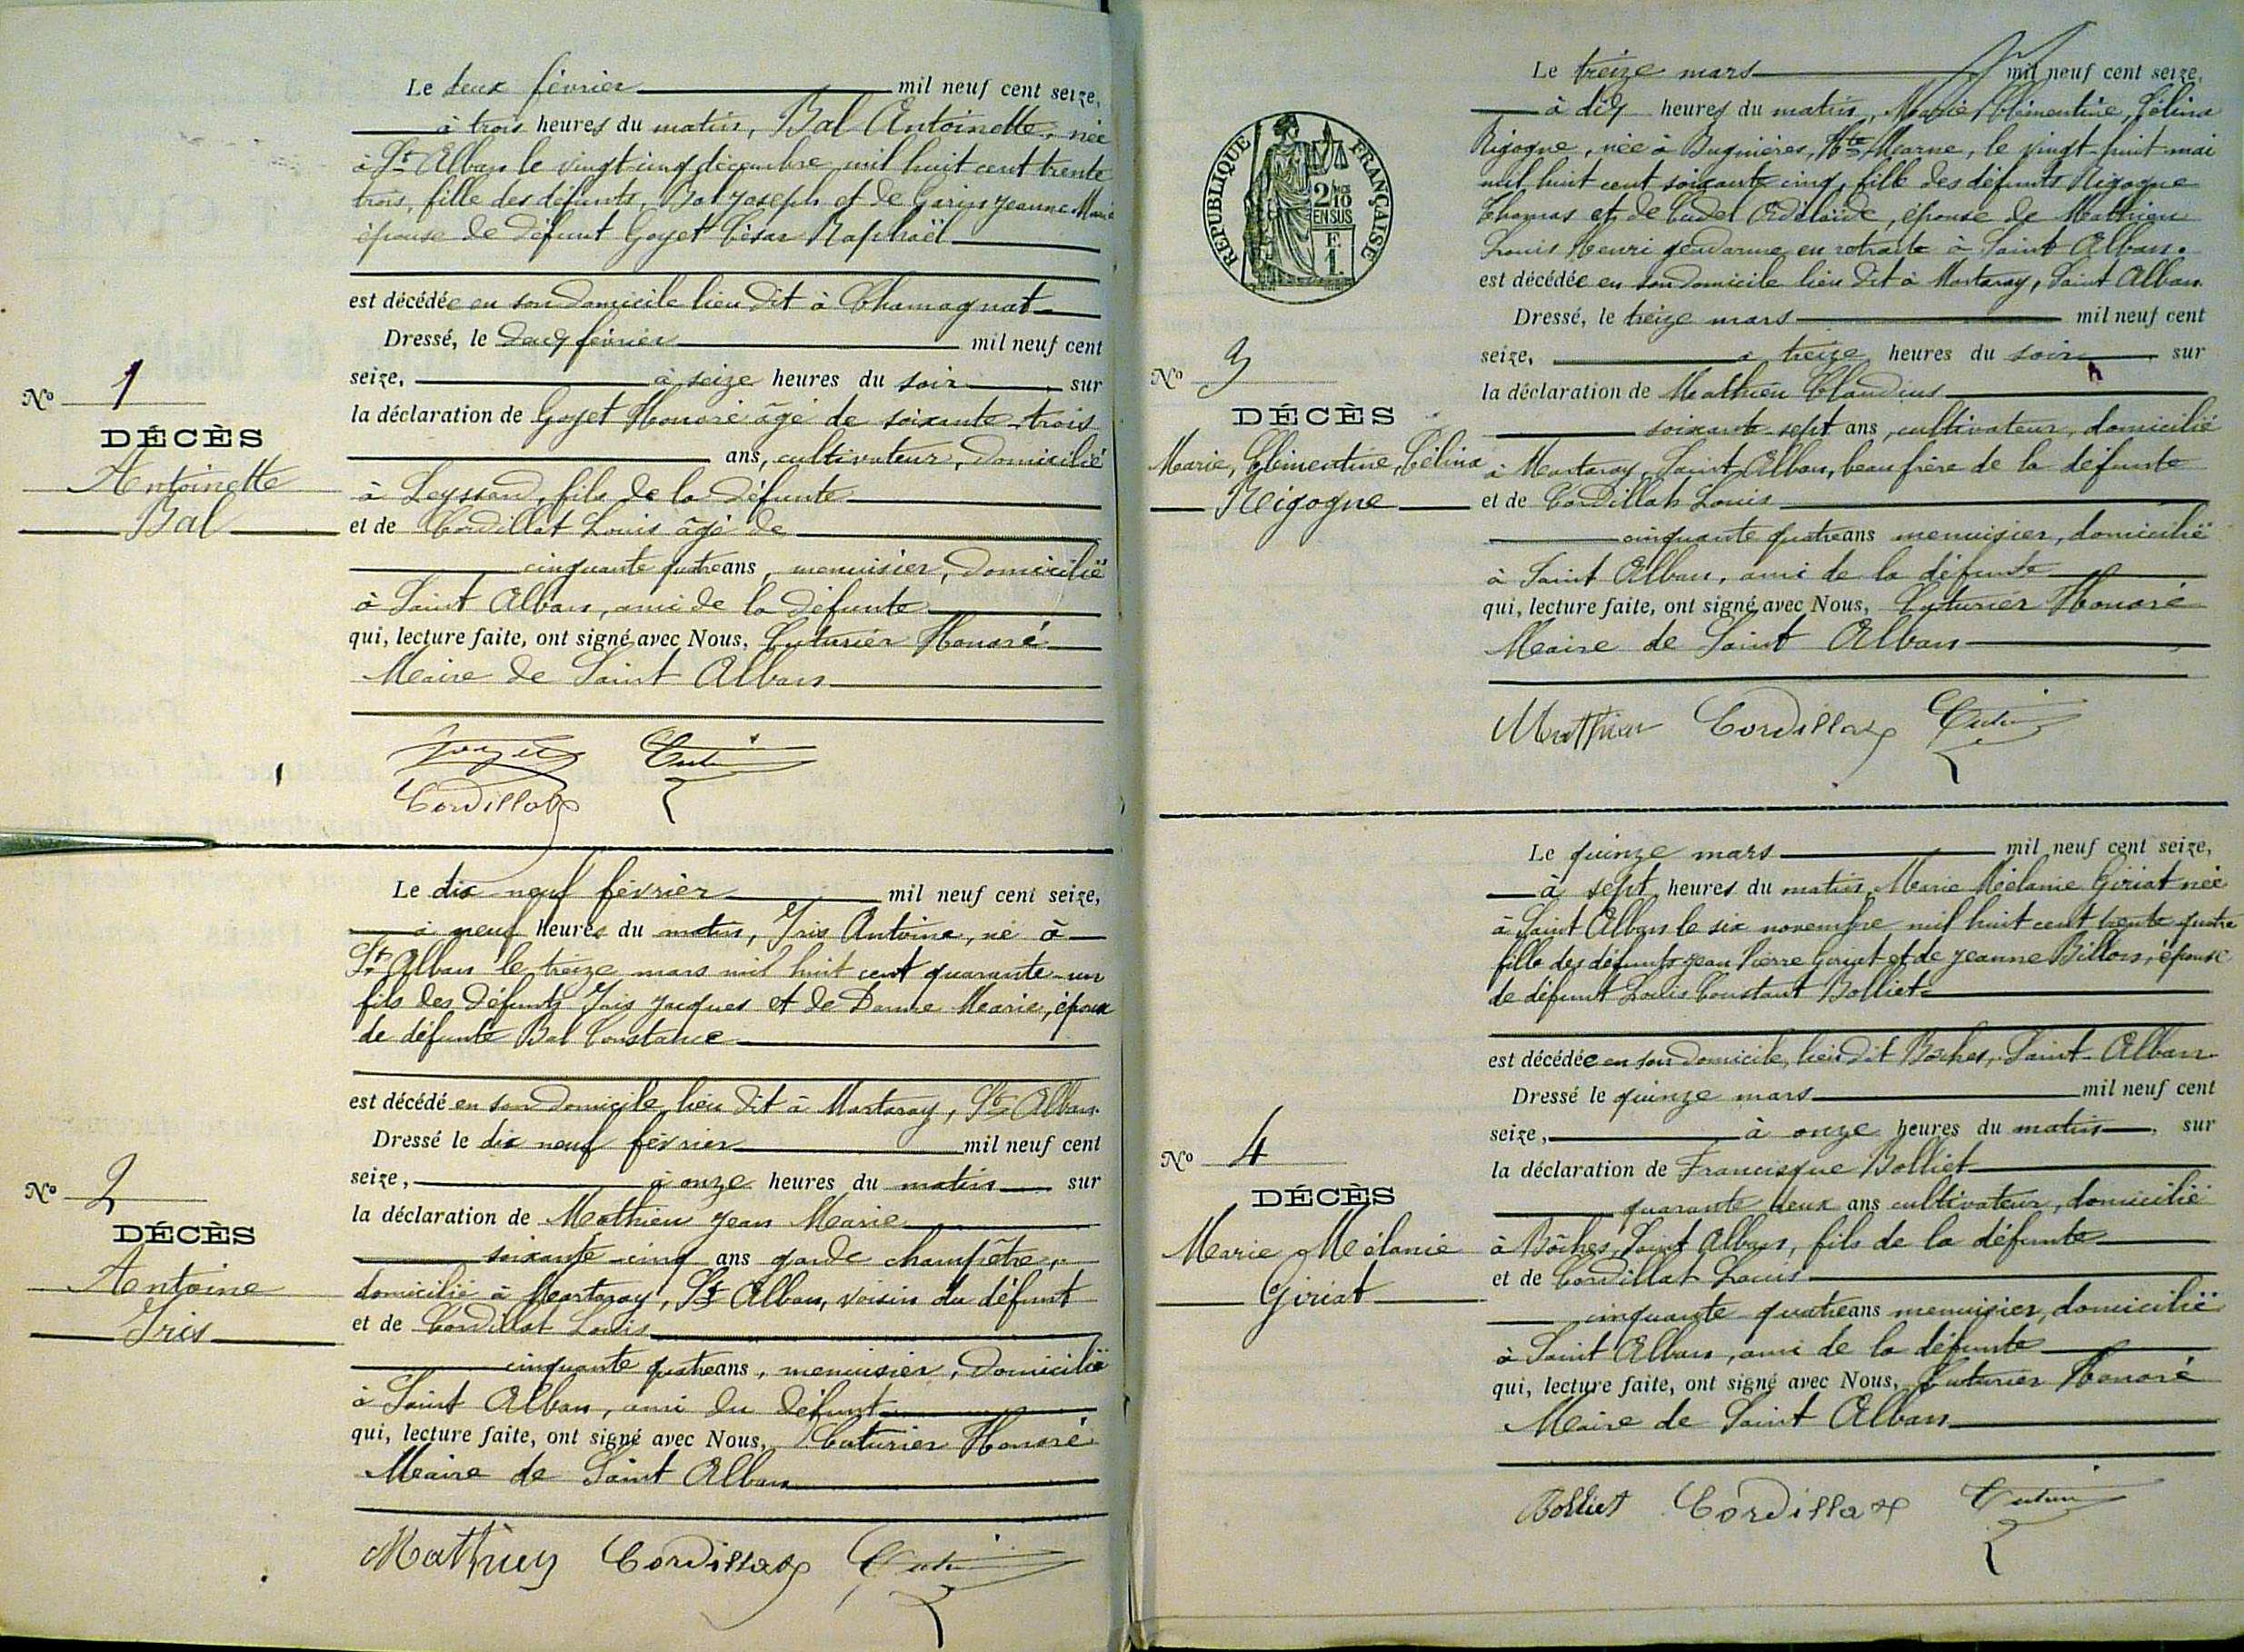 Le deux février mil neuf cent seize,
à trois heures du matin, Bal Antoinette, née
à St Alban le vingt cinq décembre mil huit cent trente
trois, fille des défunts, Bal Joseph et de Garin Jeanne Marie
épouse de défunt Goyet César Raphaël
est décédée en son domicile lieu dit à Chamagnat
Dressé, le deux février mil neuf cent
seize, à seize heures du soir, sur
la déclaration de Goyet Honoré âgé de soixante trois
ans, cultivateur, domicilié
à Leyssard, fils de la défunte
et de Cordillat Louis âgé de
cinquante quatre ans, menuisier, domicilié
à Saint Alban, ami de la défunte
qui, lecture faite, ont signé avec Nous, Cuturier Honoré
Maire de Saint Alban
No 1
DÉCÈS
Antoinette
Bal
Goyet
Cordillat
Le dix neuf février mil neuf cent seize,
à neuf heures du matin, Iris Antoine, né à
St Alban le treize mars mil huit cent quarante-un
fils des défunts Iris Jacques et de Danne Marie, époux
de défunte Bal Constance
est décédé en son domicile lieu dit à Mortaray, St Alban.
Dressé le dix neuf février mil neuf cent
seize, à onze heures du matin sur
la déclaration de Mathieu Jean Marie
soixante cinq ans garde champêtre,
domicilié à Mortaray, St Alban, voisin du défunt
et de Cordillat Louis
cinquante quatre ans, menuisier, domicilié
à Saint Alban, ami du défunt
qui, lecture faite, ont signé avec Nous, Cuturier Honoré
Maire de Saint Alban
No 2
DÉCÈS
Antoine
Iris
Mathieu Cordillat
RÉPUBLIQUE FRANÇAISE
2/10
EN SUS
F.
1.
Le treize mars mil neuf cent seize,
à dix heures du matin, Marie Clémentine Célina
Rigogne, née à Bugnières, Hte Marne, le vingt-huit mai
mil huit cent soixante cinq, fille des défunts Rigogne
Thomas et de Cudel Adélaïde, épouse de Mathieu
Louis Henri gendarme en retraite à Saint Alban.
est décédée en son domicile lieu dit à Mortaray, Saint Alban.
Dressé, le treize mars mil neuf cent
seize, à treize heures du soir, sur
la déclaration de Mathieu Claudius
soixante sept ans, cultivateur, domicilié
à Mortaray, Saint Alban, beau frère de la défunte
et de Cordillat Louis
cinquante quatre ans menuisier, domicilié
à Saint Alban, ami de la défunte
qui, lecture faite, ont signé avec Nous, Cuturier Honoré
Maire de Saint Alban
No 3
DÉCÈS
Marie, Clémentine, Célina
Rigogne
Matthieu Cordillat
Le quinze mars mil neuf cent seize,
à sept heures du matin, Marie Mélanie Giriat née
à Saint Alban le six novembre mil huit cent trente quatre
fille des défunts Jean Pierre Giriat et de Jeanne Billon, épouse
de défunt Louis Constant Bolliet
est décédée en son domicile, lieu dit Boches, Saint Alban
Dressé le quinze mars mil neuf cent
seize, à onze heures du matin, sur
la déclaration de Francisque Bolliet
quarante deux ans cultivateur, domicilié
à Bôches, Saint Alban, fils de la défunte
et de Cordillat Louis
cinquante quatre ans menuisier, domicilié
à Saint Alban, ami de la défunte
qui, lecture faite, ont signé avec Nous, Cuturier Honoré
Maire de Saint Alban
No 4
DÉCÈS
Marie Mélanie
Giriat
Bolliet Cordillat